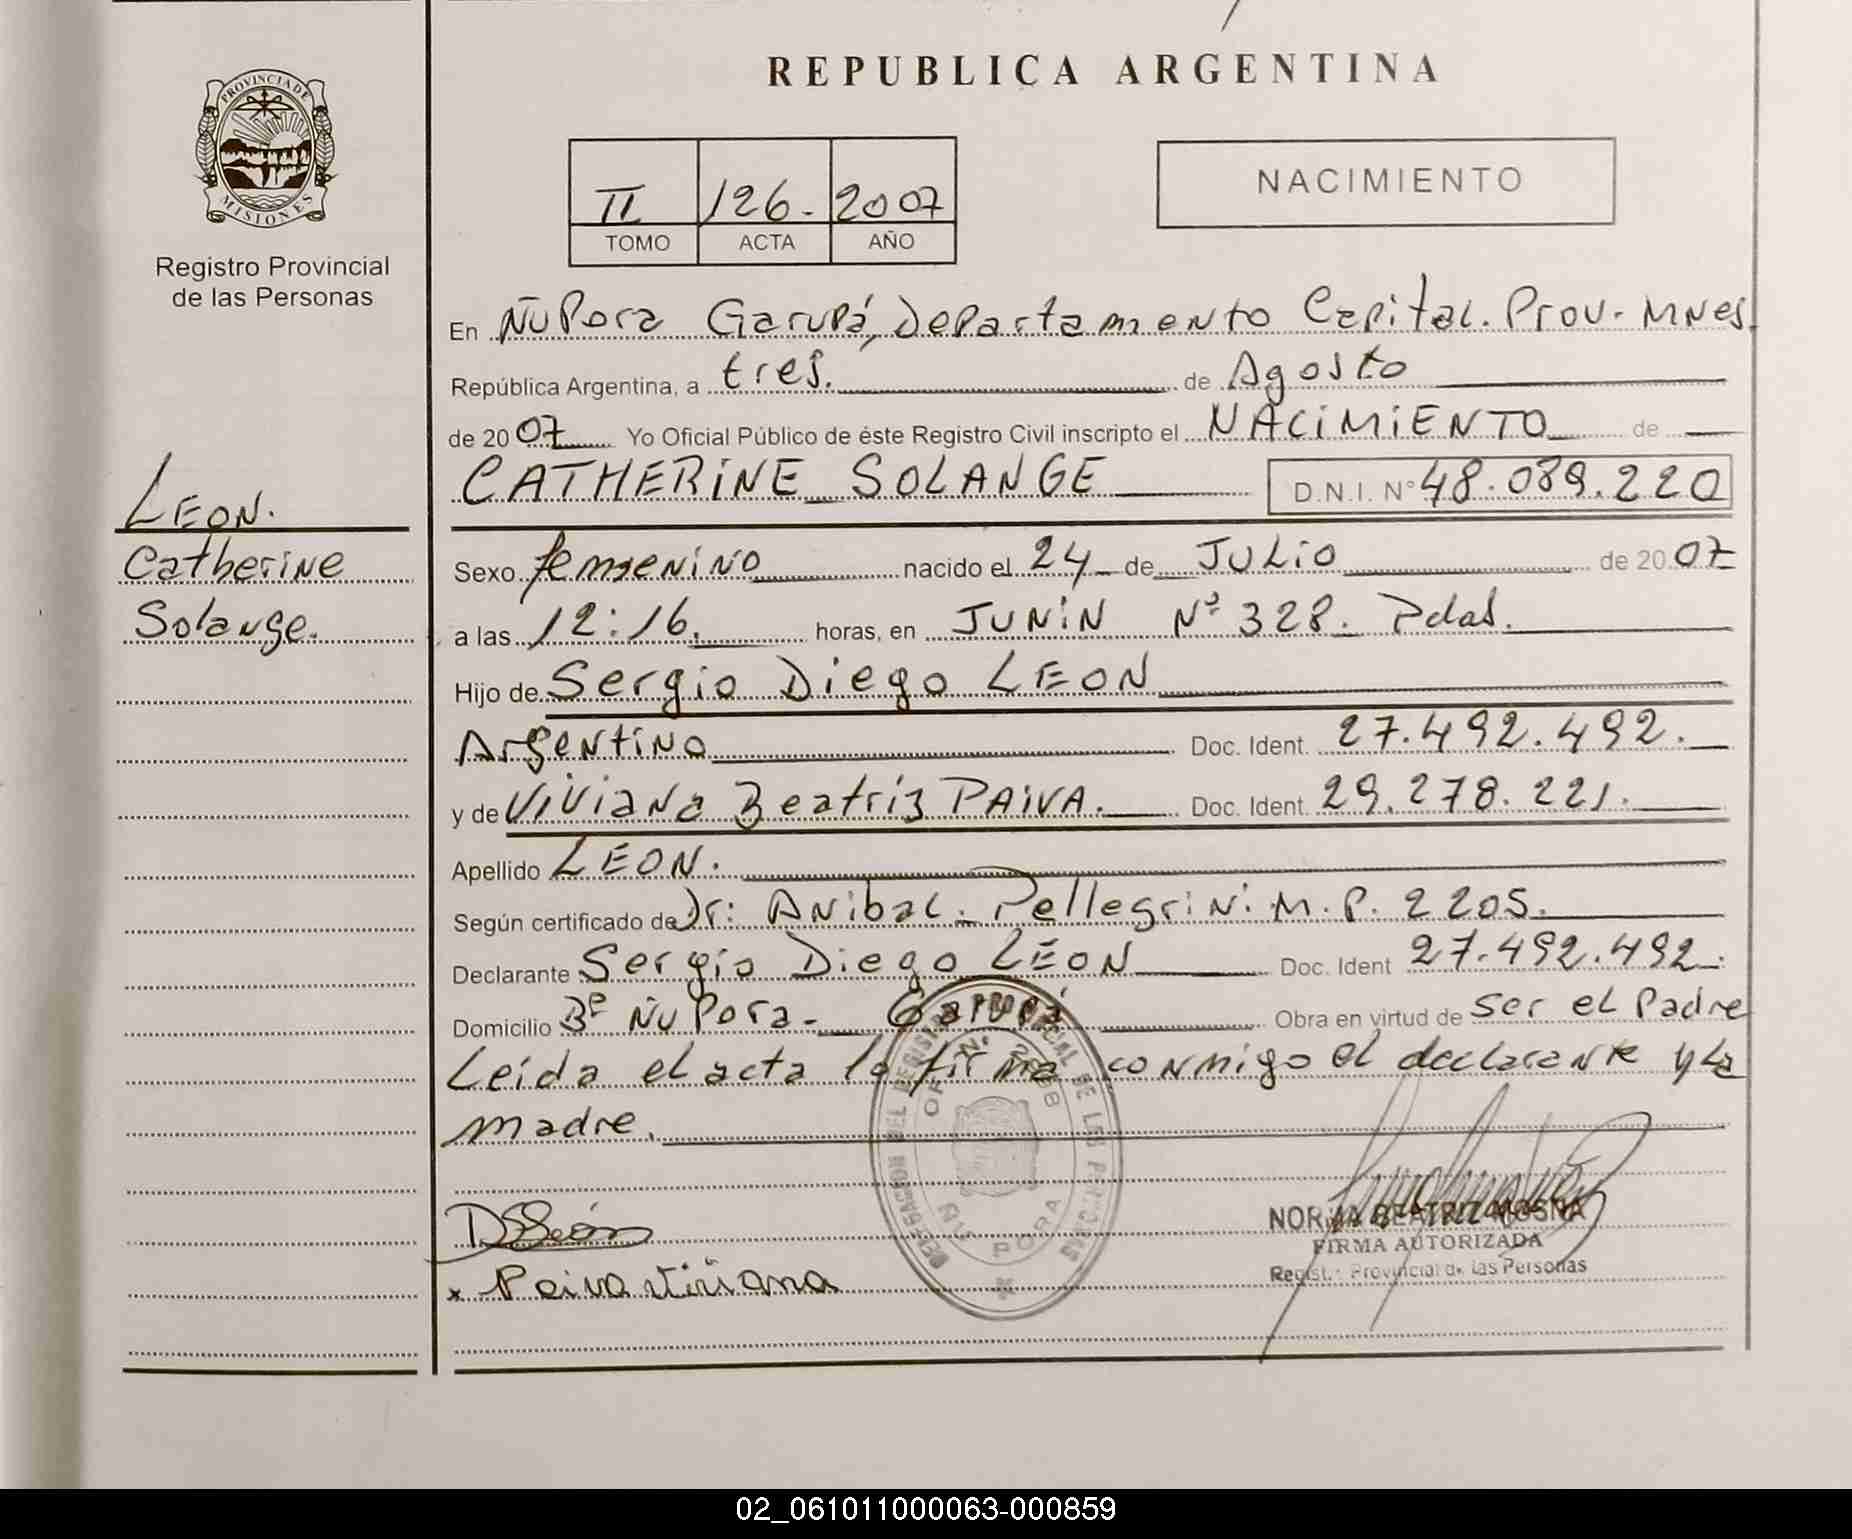 REPUBLICA ARGENTINA
PROVINCIA DE
MISIONES
Registro Provincial
de las Personas
II 126.- 2007
TOMO ACTA AÑO
NACIMIENTO
En Ñu Pora Garupá, Departamento Capital. Prov. Mnes.
República Argentina, a tres. de Agosto
de 2007 Yo Oficial Público de éste Registro Civil inscripto el NACIMIENTO de
CATHERINE SOLANGE D.N.I. Nº 48.089.220
LEON.
Catherine
Solange.
Sexo femenino nacido el 24 de JULIO de 2007
a las 12:16. horas, en JUNIN Nº 328. Pdas.
Hijo de Sergio Diego LEON
Argentino Doc. Ident. 27.492.492.
y de Viviana Beatriz PAIVA. Doc. Ident. 29.278.221.
Apellido LEON.
Según certificado de Dr: Anibal. Pellegrini M.P. 2205.
Declarante Sergio Diego LEON Doc. Ident 27.492.492.
Domicilio Bº Ñu Pora - Garupá Obra en virtud de ser el Padre
Leída el acta la firma conmigo el declarante y la
madre.
OF. Nº
ÑU PORA
DSLeón
x Paiva Viviana
NORMA BEATRIZ
FIRMA AUTORIZADA
Regist. Provincial de las Personas
02_061011000063-000859